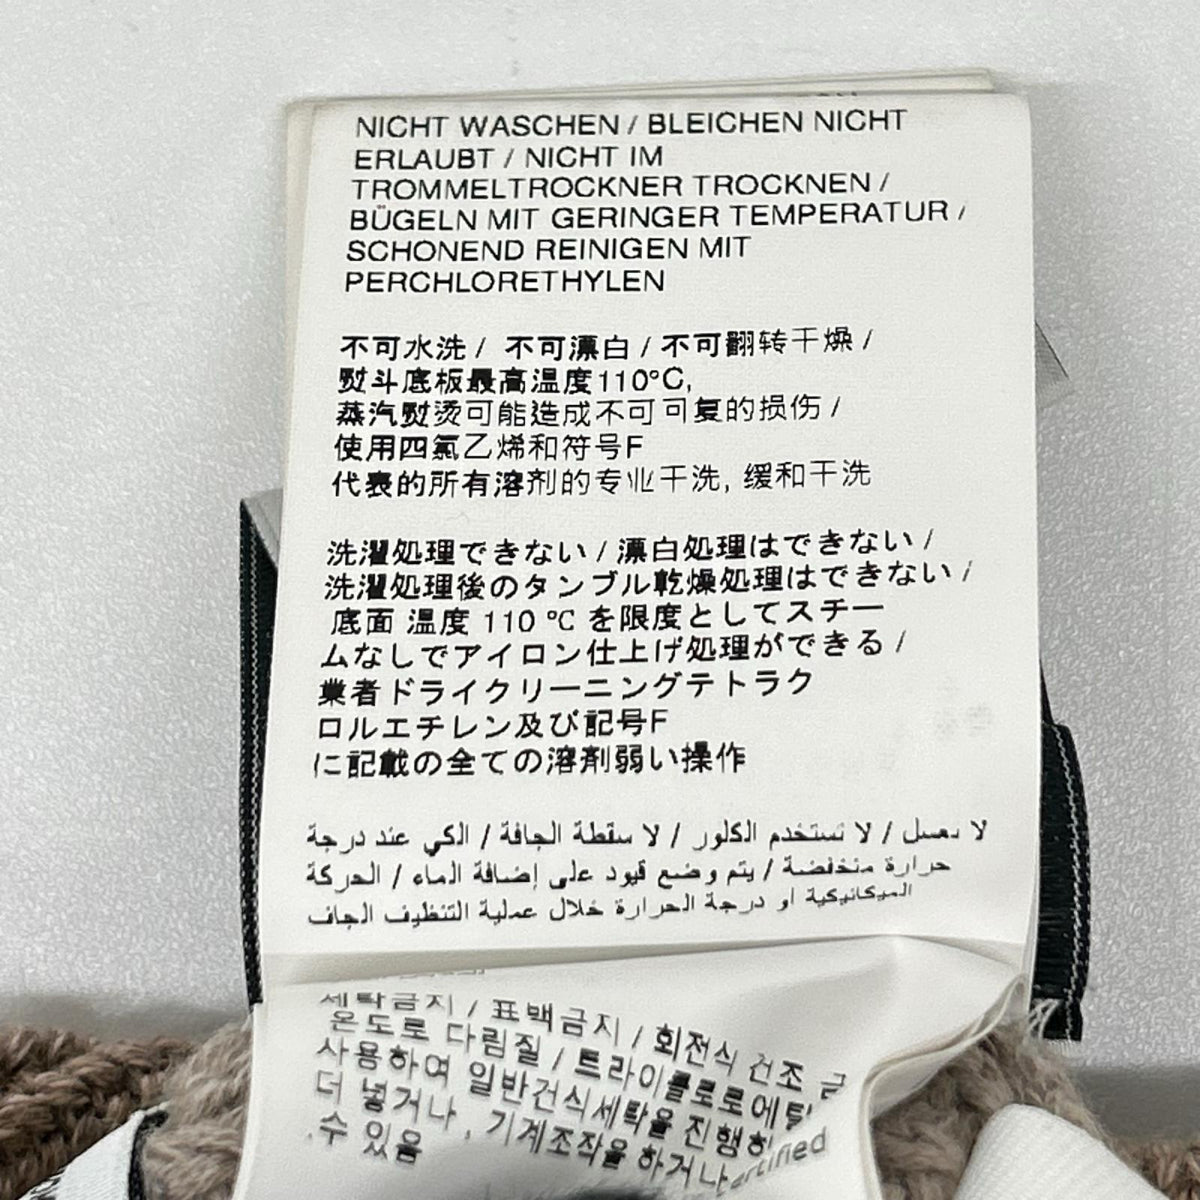 NICHT WASCHEN / BLEICHEN NICHT
ERLAUBT / NICHT IM
TROMMELTROCKNER TROCKNEN /
BÜGELN MIT GERINGER TEMPERATUR /
SCHONEND REINIGEN MIT
PERCHLORETHYLEN
不可水洗 / 不可漂白 / 不可翻转干燥 /
熨斗底板最高温度110°C,
蒸汽熨烫可能造成不可可复的损伤 /
使用四氯乙烯和符号F
代表的所有溶剂的专业干洗, 缓和干洗
洗濯処理できない / 漂白処理はできない /
洗濯処理後のタンブル乾燥処理はできない /
底面 温度 110 °C を限度としてスチー
ムなしでアイロン仕上げ処理ができる /
業者ドライクリーニングテトラク
ロルエチレン及び記号F
に記載の全ての溶剤弱い操作
لا تغسل / لا تستخدم الكلور / لا سقطة الجافة / الكي عند درجة
حرارة منخفضة / يتم وضع قيود على إضافة الماء / الحركة
الميكانيكية او درجة الحرارة خلال عملية التنظيف الجاف
세탁금지 / 표백금지 / 회전식 건조 금
온도로 다림질 / 트라이클로로에틸
사용하여 일반건식세탁을 진행하
더 넣거나, 기계조작을 하거나
수 있음